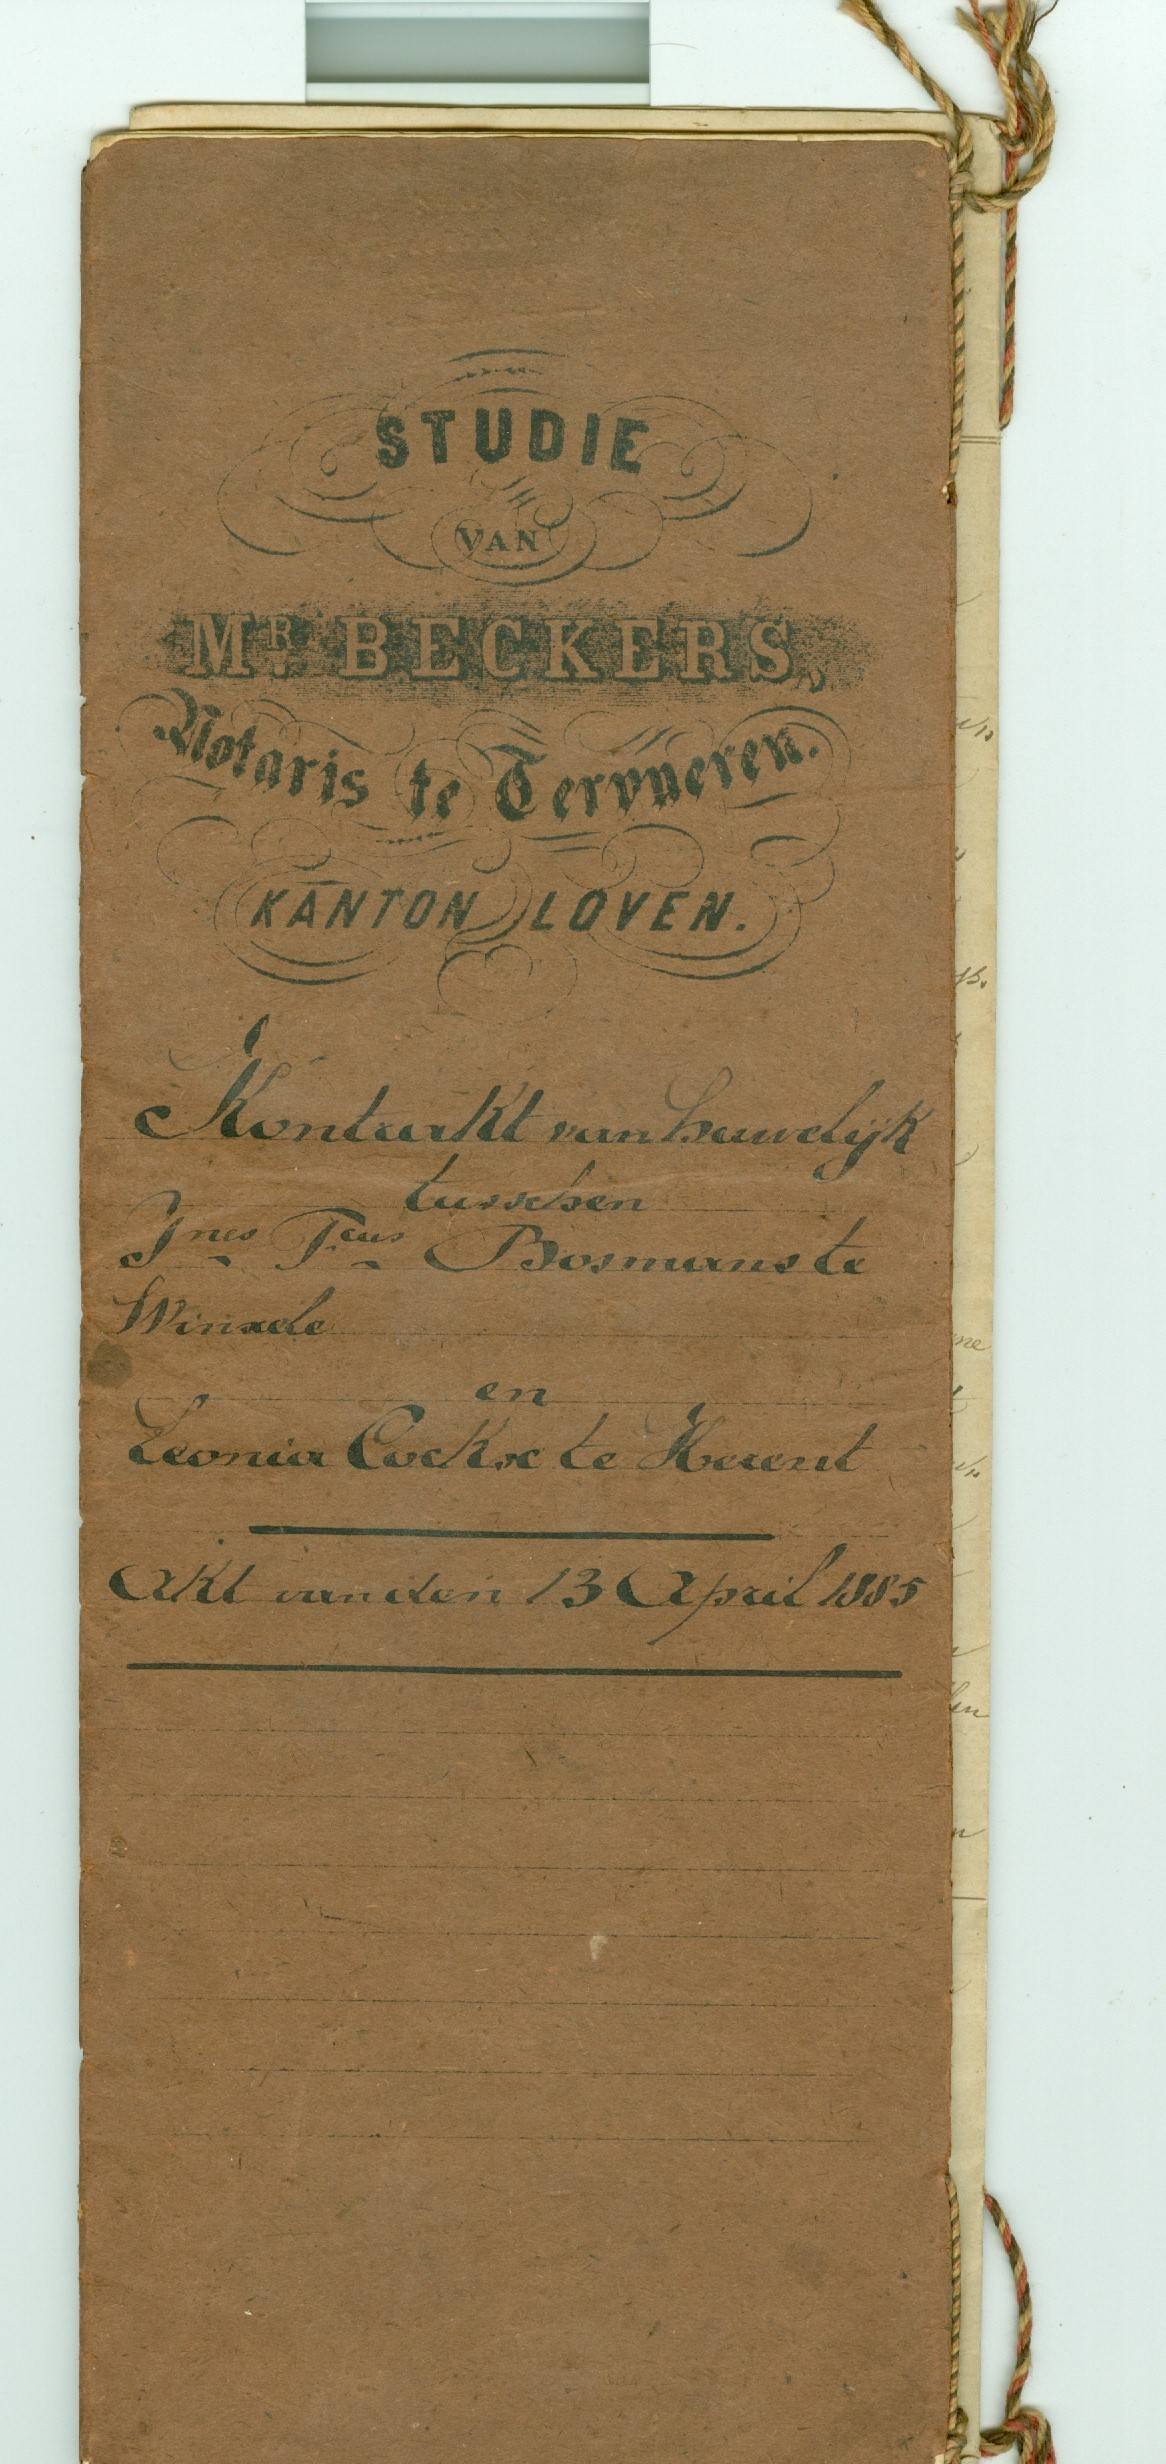 STUDIE
VAN
MR. BECKERS,
Notaris te Tervueren.
KANTON LOVEN.
Kontrakt van huwelijk
tusschen
Jnes Fcus Bosmans te
Winxele
en
Leonia Cockx te Herent
Akt van den 13 April 1885